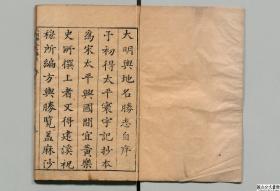 大明輿地名勝志自序
予初得太平寰宇記抄本
爲宋太平興國間宜黃樂
史所撰上者又得建溪祝
穆所編方輿勝覽蓋麻沙